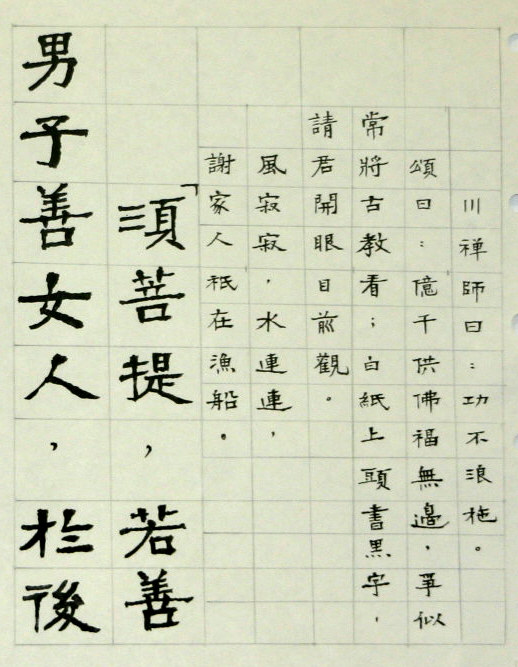 川禅師曰：功不浪施。
頌曰：億千供佛福無邊，爭似
常將古教看；白紙上頭書黑字，
請君開眼目前觀。
風寂寂，水連連，
謝家人秖在漁船。
「須菩提，若善
男子善女人，於後